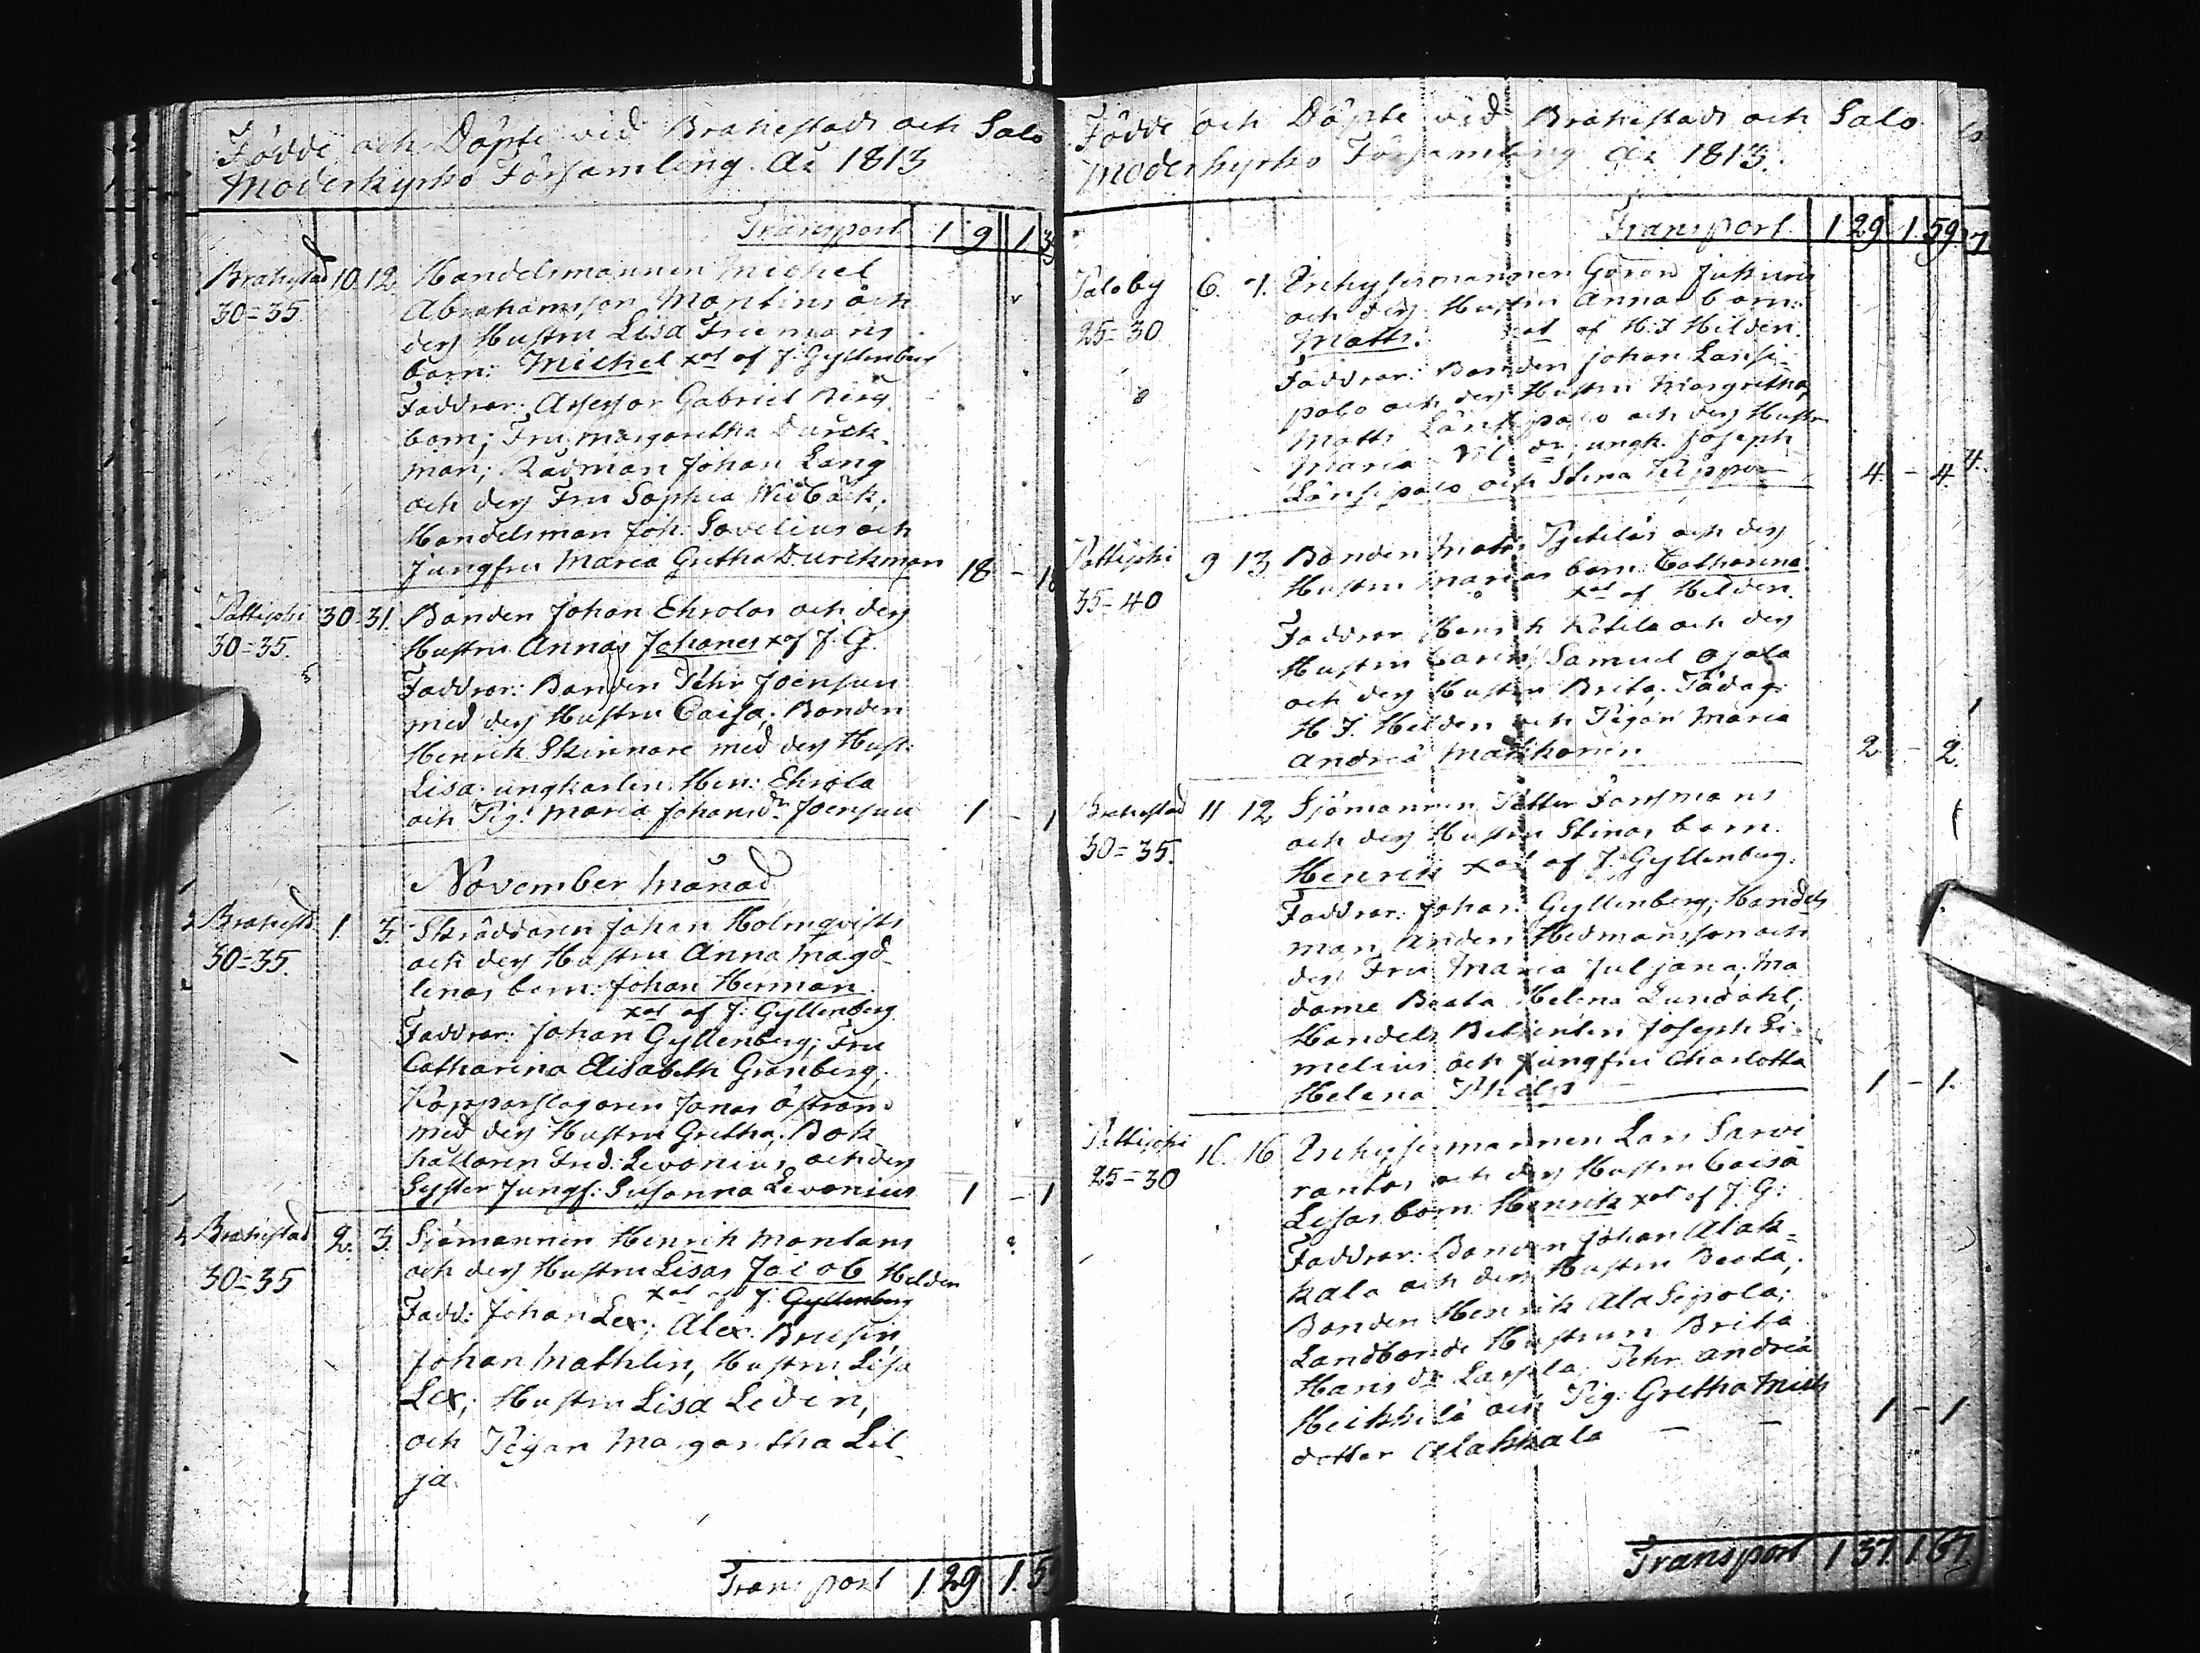 Födde och Döpte vid Brahestads och Salo
Moderkyrko Församling. År 1813
Transport 1 9 1 39
Brahestad 10. 12. Handelsmannen Michel
30=35. Abrahamsson Montins och
dess Hustru Lisa Freemans
barn: Michel xst af J: Gyllenberg
Faddrar: Assessor Gabriel Berg
bom; Fru Margaretha Durck-
man; Rådman Johan Lang
och dess Fru Sophia Nedbäck;
Handelsman Joh: Sovelius och
Jungfru Maria Gretha Durckman 18 – 18
Pattijoki 30. 31. Bonden Johan Ehrolas och dess
30=35. Hustru Annas Johanes x af J. G.
Faddrar: Bonden Pehr Joensuu
med dess Hustru Caisa; Bonden
Henrik Skinnare med dess Hust:
Lisa. ungkarlen Hen: Ehrola
och Pig: Maria Johansdr Joensuu 1 – 1
November Månad
Brahestd 1. 3. Skräddaren Johan Holmqvists
30=35. och dess Hustru Anna Magd-
lenas barn: Johan Herman
xst af J: Gyllenberg
Faddrar: Johan Gyllenberg; Fru
Catharina Elisabeth Granberg;
Kopparslagaren Jonas Öström
med dess Hustru Gretha; Bok-
hållaren Fred: Levonius och dess
Syster Jungf: Susanna Levonius 1 – 1
Brahestad 2. 3. Sjömannen Henrik Montans
30=35 och dess Hustru Lisas Jacob Helden
xst af J. Gyllenberg
Fadd: Johan Lex; Alex: Brusin,
Johan Mathlin, Hustru Lisa
Lex; Hustru Lisa Ledin,
och Pigan Margaretha Lil-
ja.
Transport 1 29 1. 59
Födde och Döpte vid Brahestads och Salo
Moderkyrko Församling År 1813.
Transport 1 29 1. 59.
Saloby 6. 7. Inhysesmannen Göran Juhuns
25=30 och dess Hustru Annas barn:
Matts. xst af H: J Hilden.
Faddrar: Bonden Johan Länsi-
palo och dess Hustru Margretha,
Matts Länsipalo och dess Hustru
Maria dr; ungk. Joseph
Länsipalo och Stina 4. – 4.
Pattijoki 9 13 Bonden Matts och dess
35=40 Hustru Marias barn: Catharina
xst af Hilden.
Faddrar Henrik Kåtila och dess
Hustru Carin; Samuel Ojala
och dess Hustru Brita;
H J. Hilden och Pigan Maria
Andreä Makkonen 2 – 2.
Brahestad 11 12 Sjömannen Petter Forssmans
30=35. och dess Hustru Stinas barn.
Henrik xst af J. Gyllenberg.
Faddrar: Johan Gyllenberg; Handels
man Anders Hedmansson och
dess Fru Maria Juljana; Ma
dame Beata Helena Lundahl;
Handels Betjenten Joseph Si-
melius och Jungfru Charlotta
Helena 1 – 1.
Pattijoki 16. 16 Inhysesmannen Lars Sarvi
25=30 rantas och dess Hustru Caisa
Lisas barn Henrik xst af J. G:
Faddrar: Bonden Johan Alak-
kala och dess Hustru Beata;
Bonden Henrik AlaSipola;
Landbonde Hustrun Brita
Hans dr Pehr Andreä
Heikkilä och Pig: Gretha Mich
dotter Alakkala – – 1 – 1
Transport 1 37 1 67.